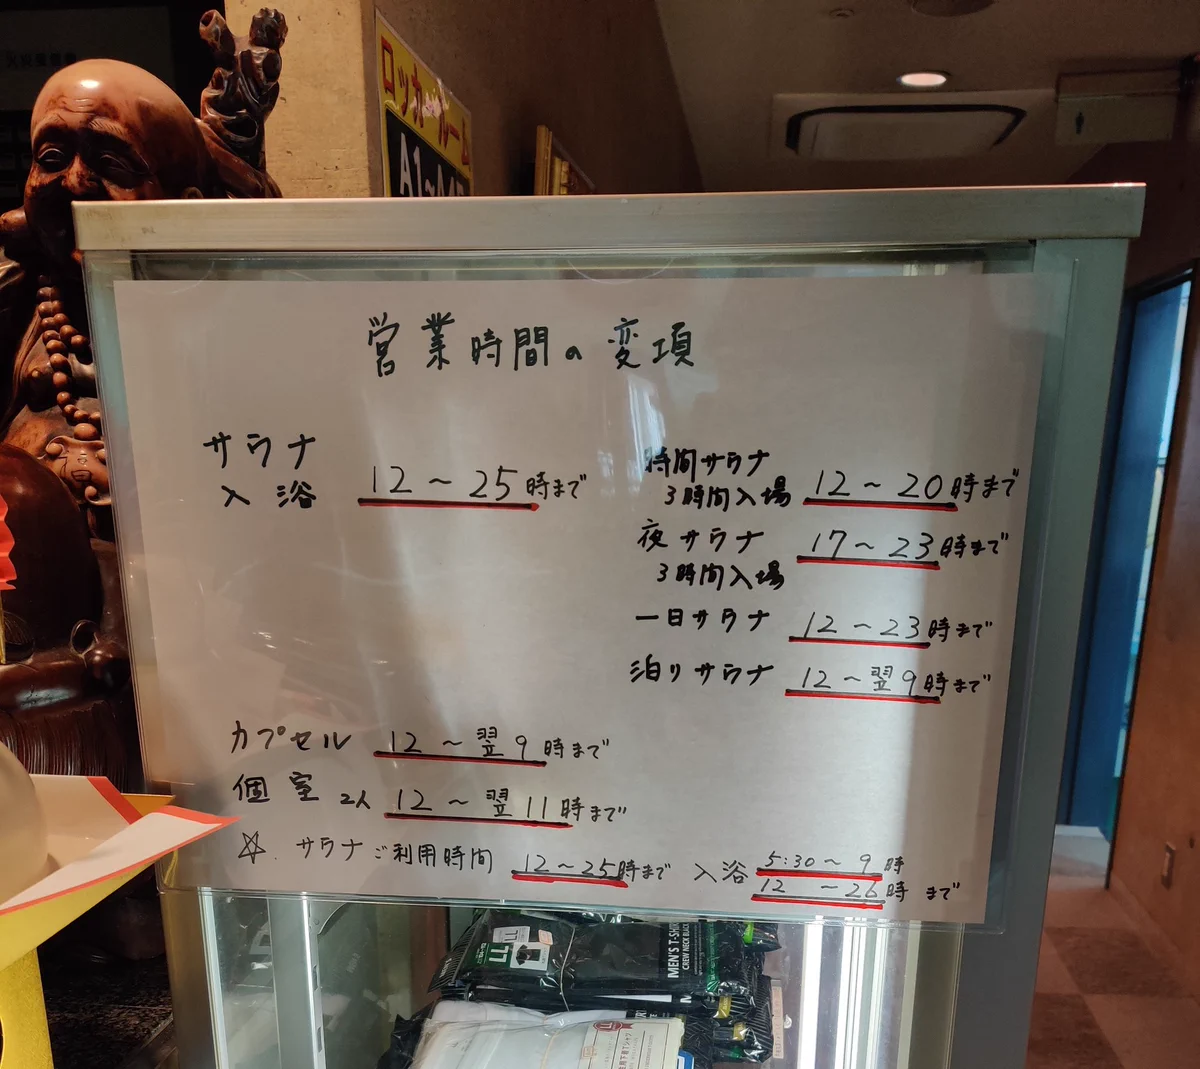 ロッカールーム
A1~
営業時間の変項
サウナ
入浴 12~25時まで
時間サウナ
3時間入場 12~20時まで
夜サウナ 17~23時まで
3時間入場
一日サウナ 12~23時まで
泊りサウナ 12~翌9時まで
カプセル 12~翌9時まで
個室 2人 12~翌11時まで
☆.サウナご利用時間 12~25時まで 入浴 5:30~9時
12 ~26時まで
LL
LL
MEN'S T-SHIRT
CREW NECK BLACK